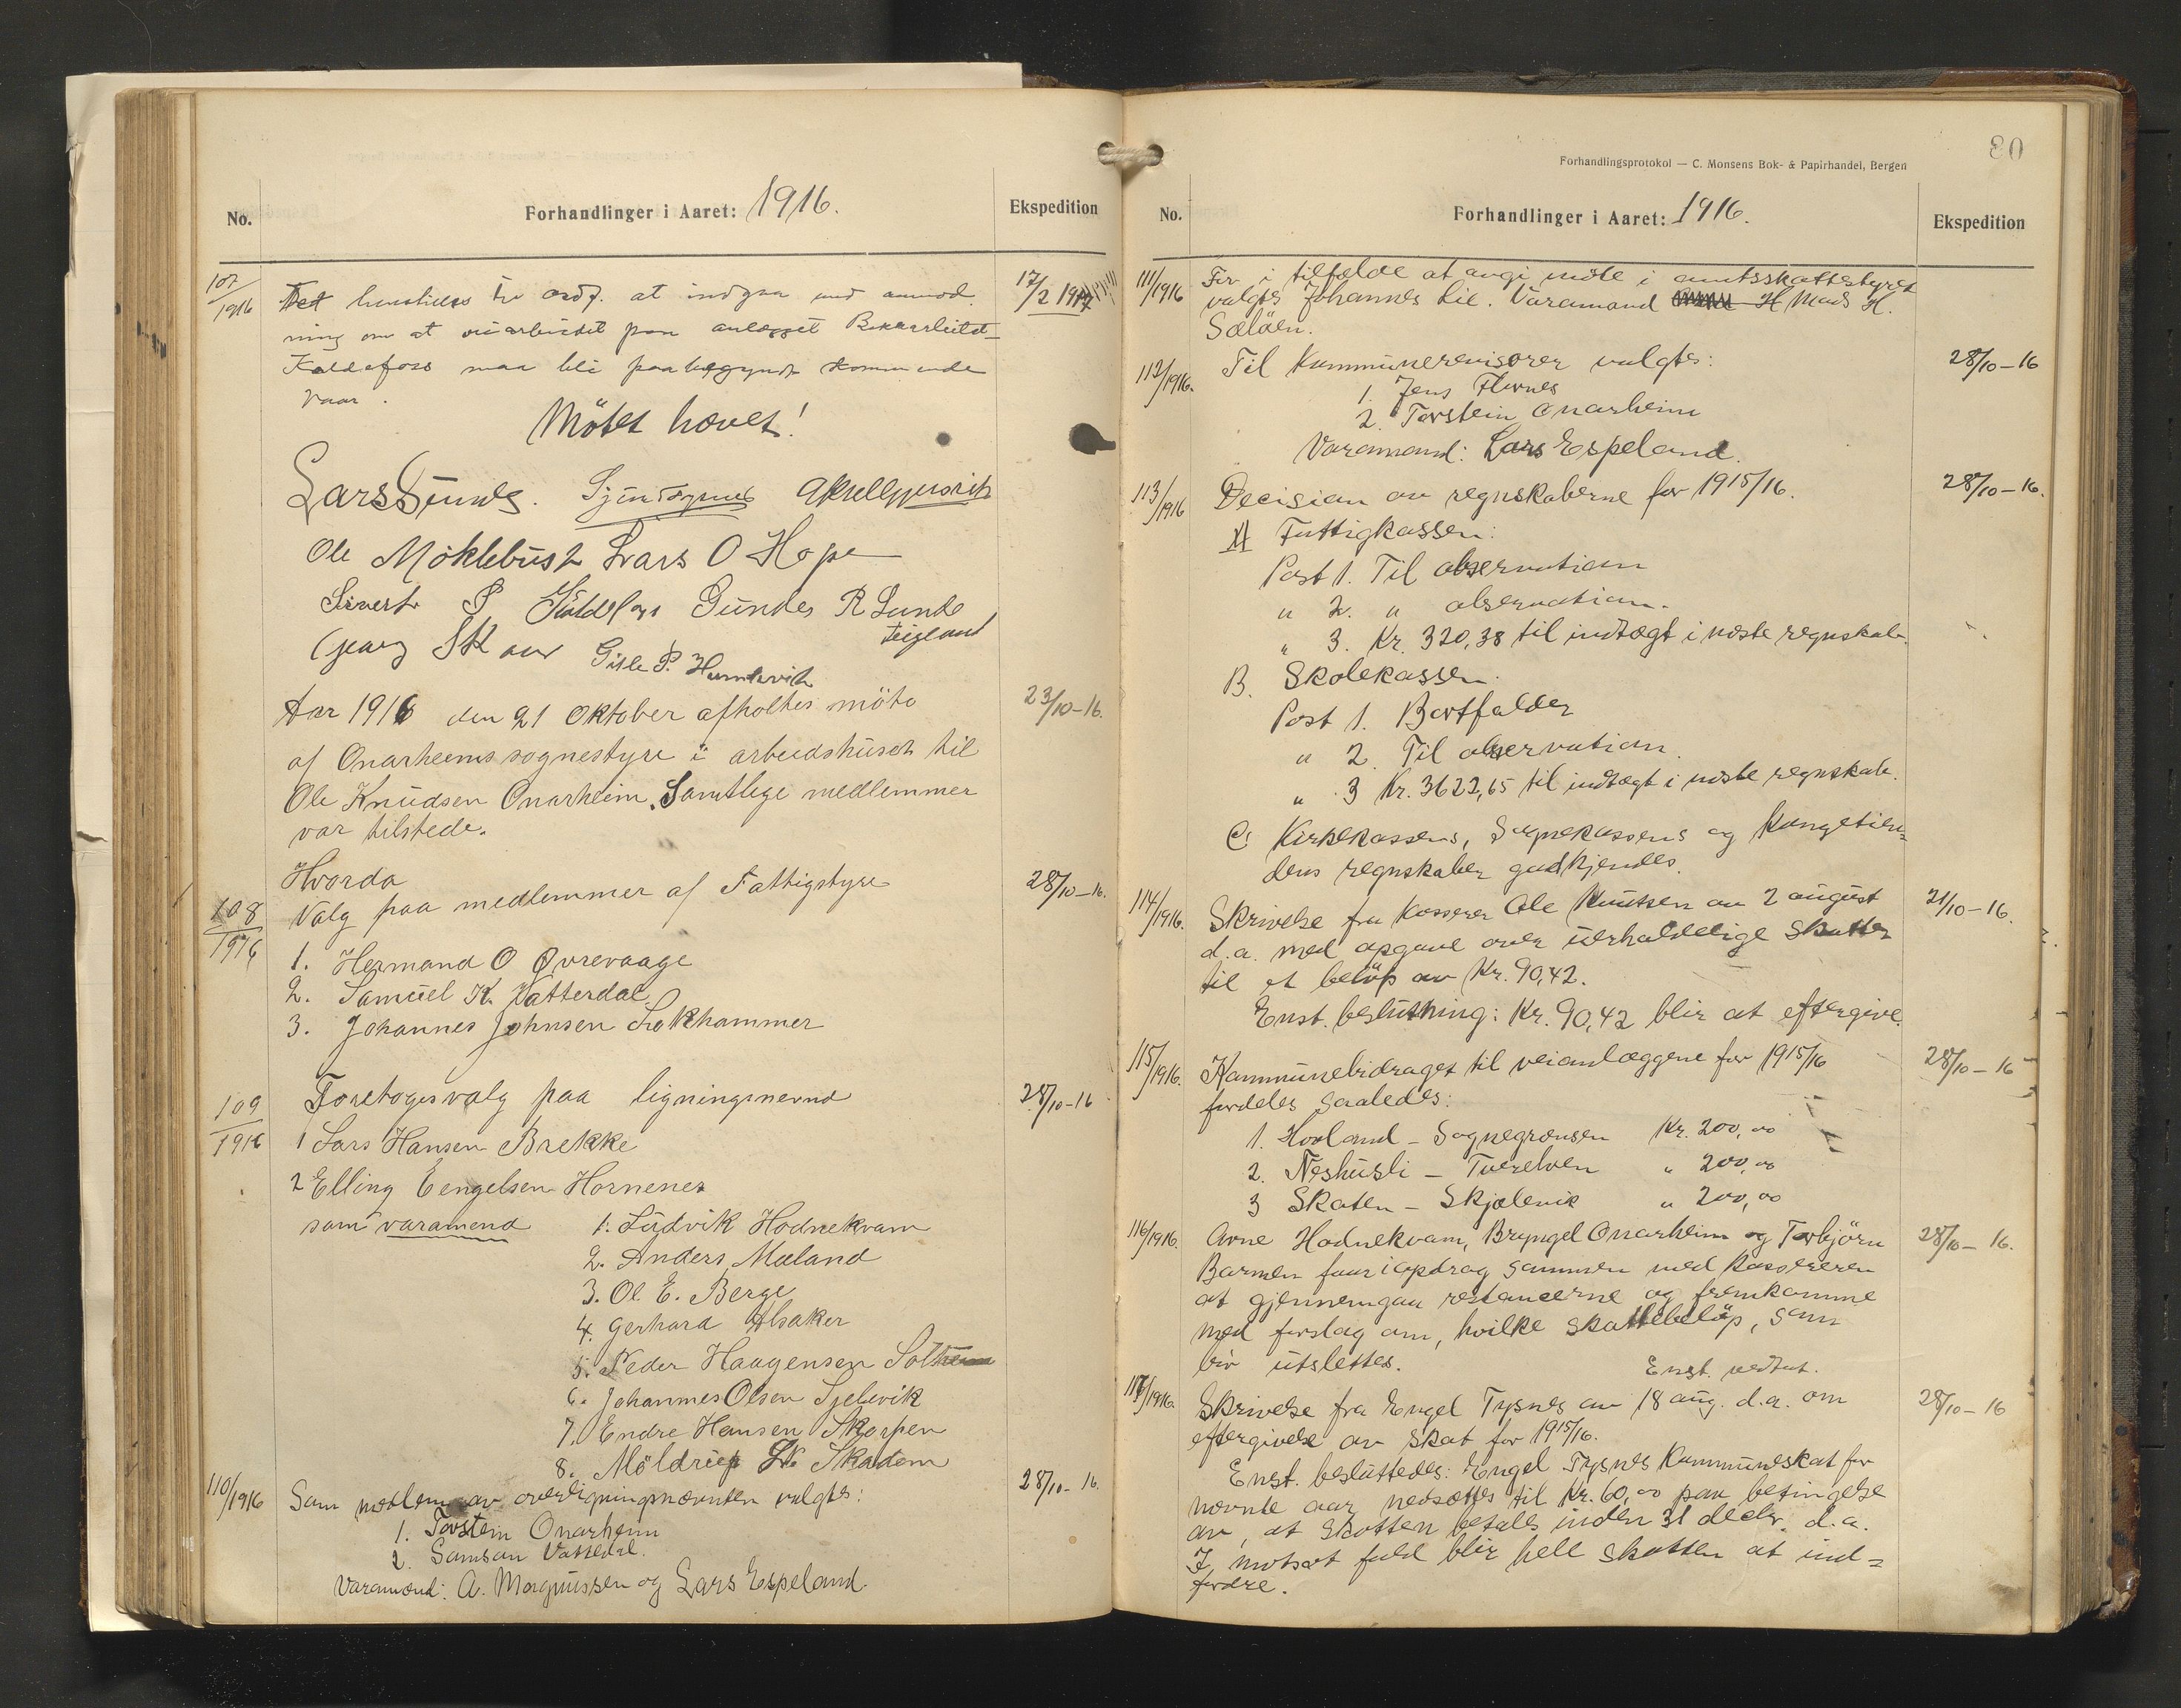 No.
Forhandlinger i Aaret: 1916.
Ekspedition
107/1916
Det henstilles til ordf. at indgaa med anmod-
17/2 1917
ning om at veiarbeidet paa anlægget
Foldefoss maa bli paabegyndt kommende
vaar.
Mötet hævet!
Lars Sunde.
Ole Möklebust Lars O Hope
Sivert P. Gunder R Lunde
Teigland
Georg Skaar Gitle P. Humlevik
Aar 1916 den 21 Oktober afholtes möte
23/10-16.
af Onarheims sognestyre i arbeidshuset til
Ole Knudsen Onarheim. Samtlige medlemmer
var tilstede.
Hvorda
108/1916
Valg paa medlemmer af Fattigstyre
28/10-16.
1. Hermand O Øvrevaage
2. Samuel K. Vatterdal
3. Johannes Johnsen Lokhammer
109/1916
Foretoges valg paa ligningsnevnd
28/10-16
1 Lars Hansen Brekke
2 Elling Eengelsen Hornenes
som varamend 1. Ludvik Hodnekvam
2. Anders Maland
3. Ol. E. Berge
4. Gerhard Alsaker
5. Peder Haagensen Solheim
6. Johannes Olsen Sjelevik
7. Endre Hansen Skorpen
8. Möldrup Skadem
110/1916
Som medlem av overligningsnævnten valgtes:
28/10-16.
1. Torstein Onarheim
2. Samson Vattedal.
Varamænd: A. Magnussen og Lars Espeland.
Forhandlingsprotokol — C. Monsens Bok- & Papirhandel, Bergen
80
No.
Forhandlinger i Aaret: 1916.
Ekspedition
111/1916
For i tilfælde at avgi möte i amtsskattestyret
valgtes Johannes Lie. Varamand H Mads H.
Sælöen.
112/1916.
Til Kommunerevisorer valgtes:
28/10-16
1. Jens Flornes
2. Torstein Onarheim
Varamand: Lars Espeland.
113/1916
Decision av regnskaberne for 1915/16.
28/10-16.
A Fattigkassen:
Post 1. Til observation
" 2. " observation.
" 3. Kr. 320,38 til indtægt i næste regnskab.
B. Skolekassen.
Post 1. Bortfalder
" 2. Til observation.
" 3 Kr. 3622,65 til indtægt i næste regnskab.
C. Kirkekassens, Sognekassens og Kongetien=
dens regnskaber godkjendes.
114/1916.
Skrivelse fra Kasserer Ole Knutsen av 2 august
21/10-16.
d.a. med opgave over uerholdelige skatter
til et belöp av Kr. 90,42.
Enst. beslutning: Kr. 90,42 blir at eftergive.
115/1916.
Kommunebidraget til veianlæggene for 1915/16
28/10-16
fordeles saaledes:
1. Hovland - Sognegrænsen Kr. 200,00
2. Neshusli - Tverelven " 200,00
3 Skaten - Skjælevik " 200,00
116/1916.
Arne Hodnekvam, Bryngel Onarheim og Torbjörn
28/10-16.
Barmen faar i opdrag sammen med kassereren
at gjennemgaa restancerne og fremkomme
med forslag om, hvilke skattebelöp, som
bör utslettes.
Enst. vedtat.
117/1916.
Skrivelse fra Engel Tysnes av 18 aug. d.a. om
28/10-16
eftergivelse av skat for 1915/16.
Enst. besluttedes: Engel Tysnes Kommuneskat for
nævnte aar nedsættes til Kr. 60,00 paa betingelse
av, at skatten betales inden 31 decbr. d.a.
I motsat fald blir hele skatten at ind=
fordre.